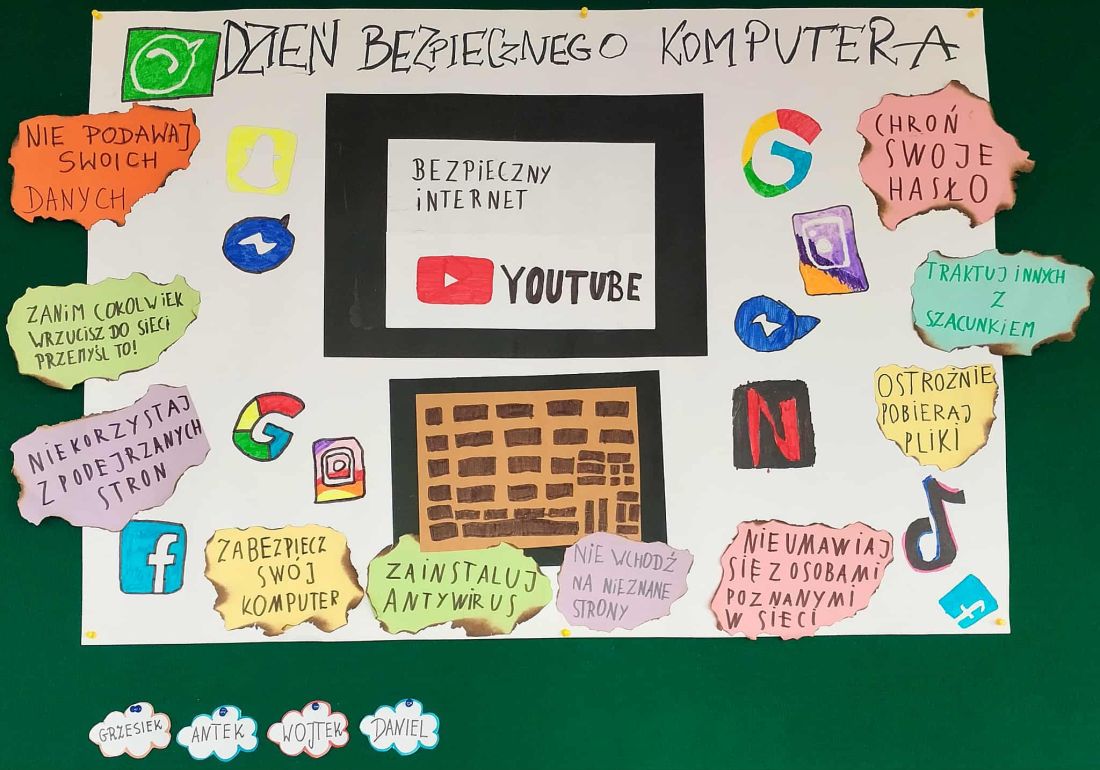 DZIEŃ BEZPIECZNEGO KOMPUTERA
NIE PODAWAJ
SWOICH
DANYCH
ZANIM COKOLWIEK
WRZUCISZ DO SIECI
PRZEMYŚL TO!
NIEKORZYSTAJ
Z PODEJRZANYCH
STRON
BEZPIECZNY
INTERNET
YOUTUBE
CHROŃ
SWOJE
HASŁO
TRAKTUJ INNYCH
Z
SZACUNKIEM
OSTROŻNIE
POBIERAJ
PLIKI
ZABEZPIECZ
SWÓJ
KOMPUTER
ZAINSTALUJ
ANTYWIRUS
NIE WCHODŹ
NA NIEZNANE
STRONY
NIE UMAWIAJ
SIĘ Z OSOBAMI
POZNANYMI
W SIECI
GRZESIEK
ANTEK
WOJTEK
DANIEL